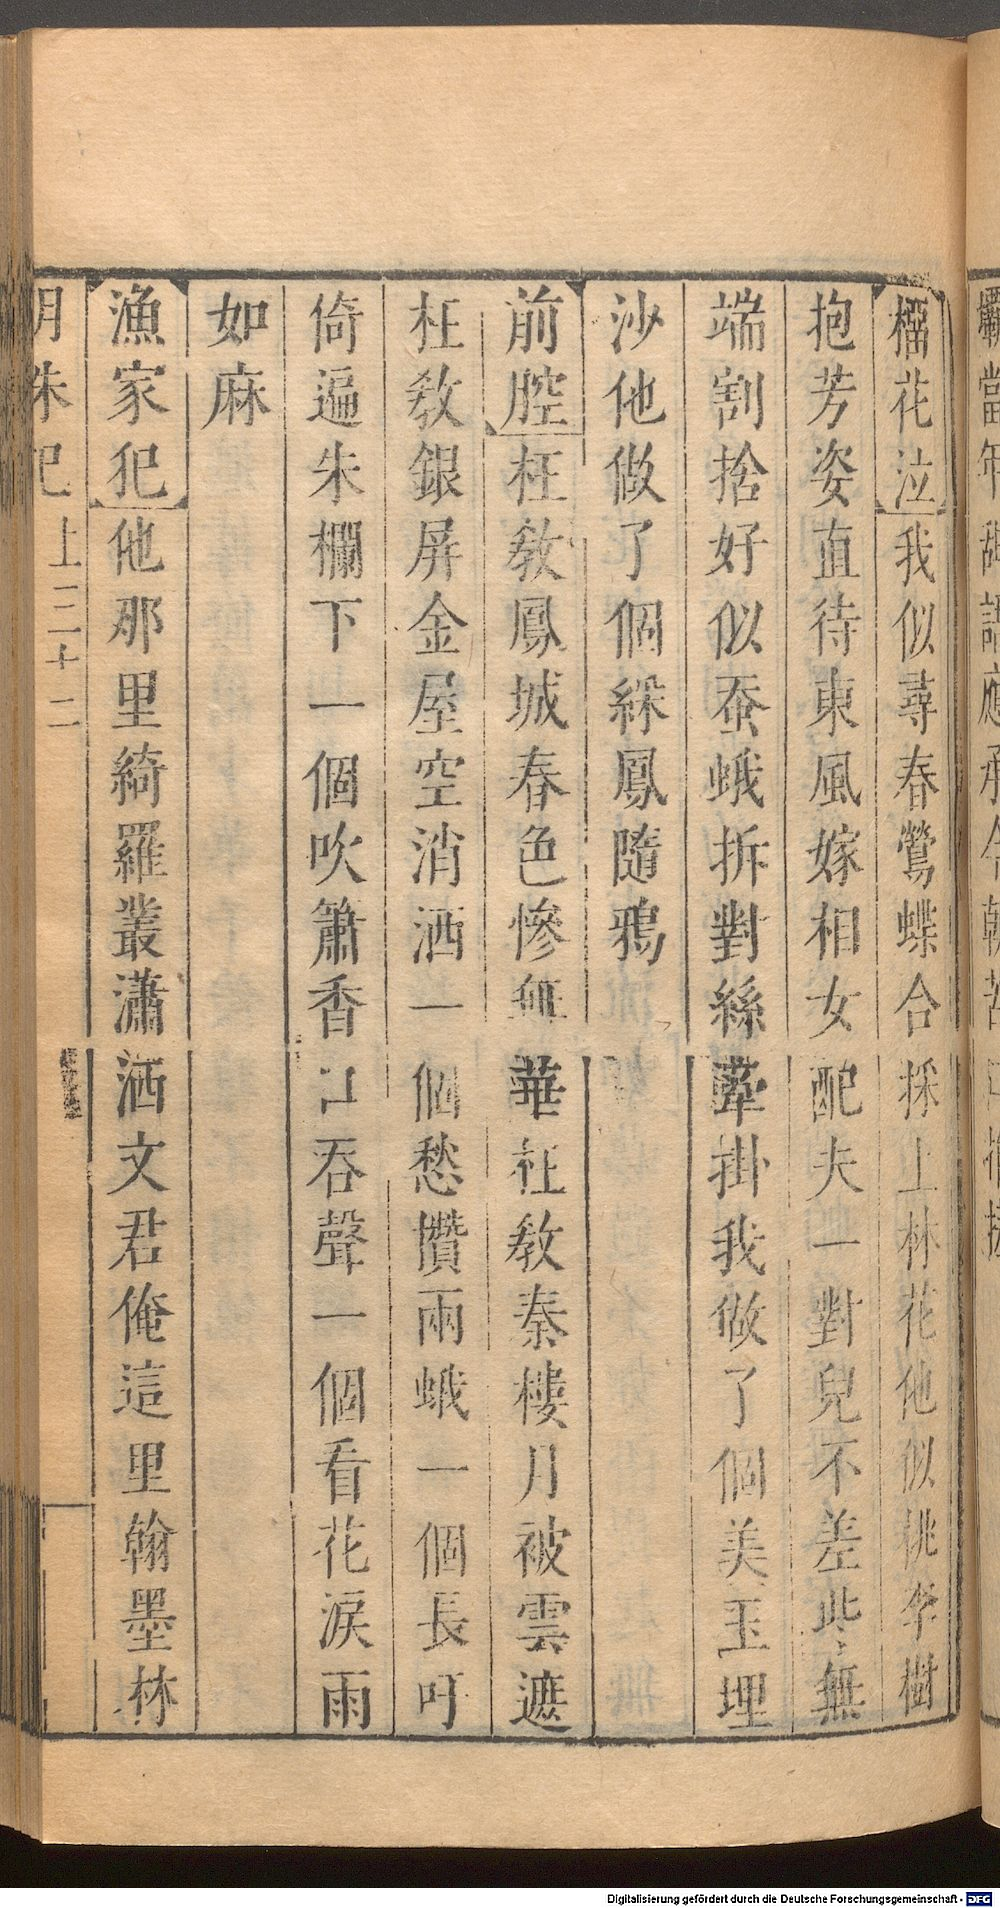 榴花泣我似尋春鶯蝶合採上林花他似桃李樹
抱芳姿直待東風嫁相女配夫一對兒不差些無
端割捨好似蚕蛾拆對絲牽掛我做了個美玉埋
沙他做了個綵鳳隨鴉
前腔枉教鳳城春色慘無華枉教秦樓月被雲遮
枉教銀屏金屋空消洒一個愁攢兩蛾一個長吁
倚遍朱欄下一個吹簫香口吞聲一個看花淚雨
如麻
漁家犯他那里綺羅叢瀟洒文君俺這里翰墨林
明朱記 上三十二
Digitalisierung gefördert durch die Deutsche Forschungsgemeinschaft - DFG